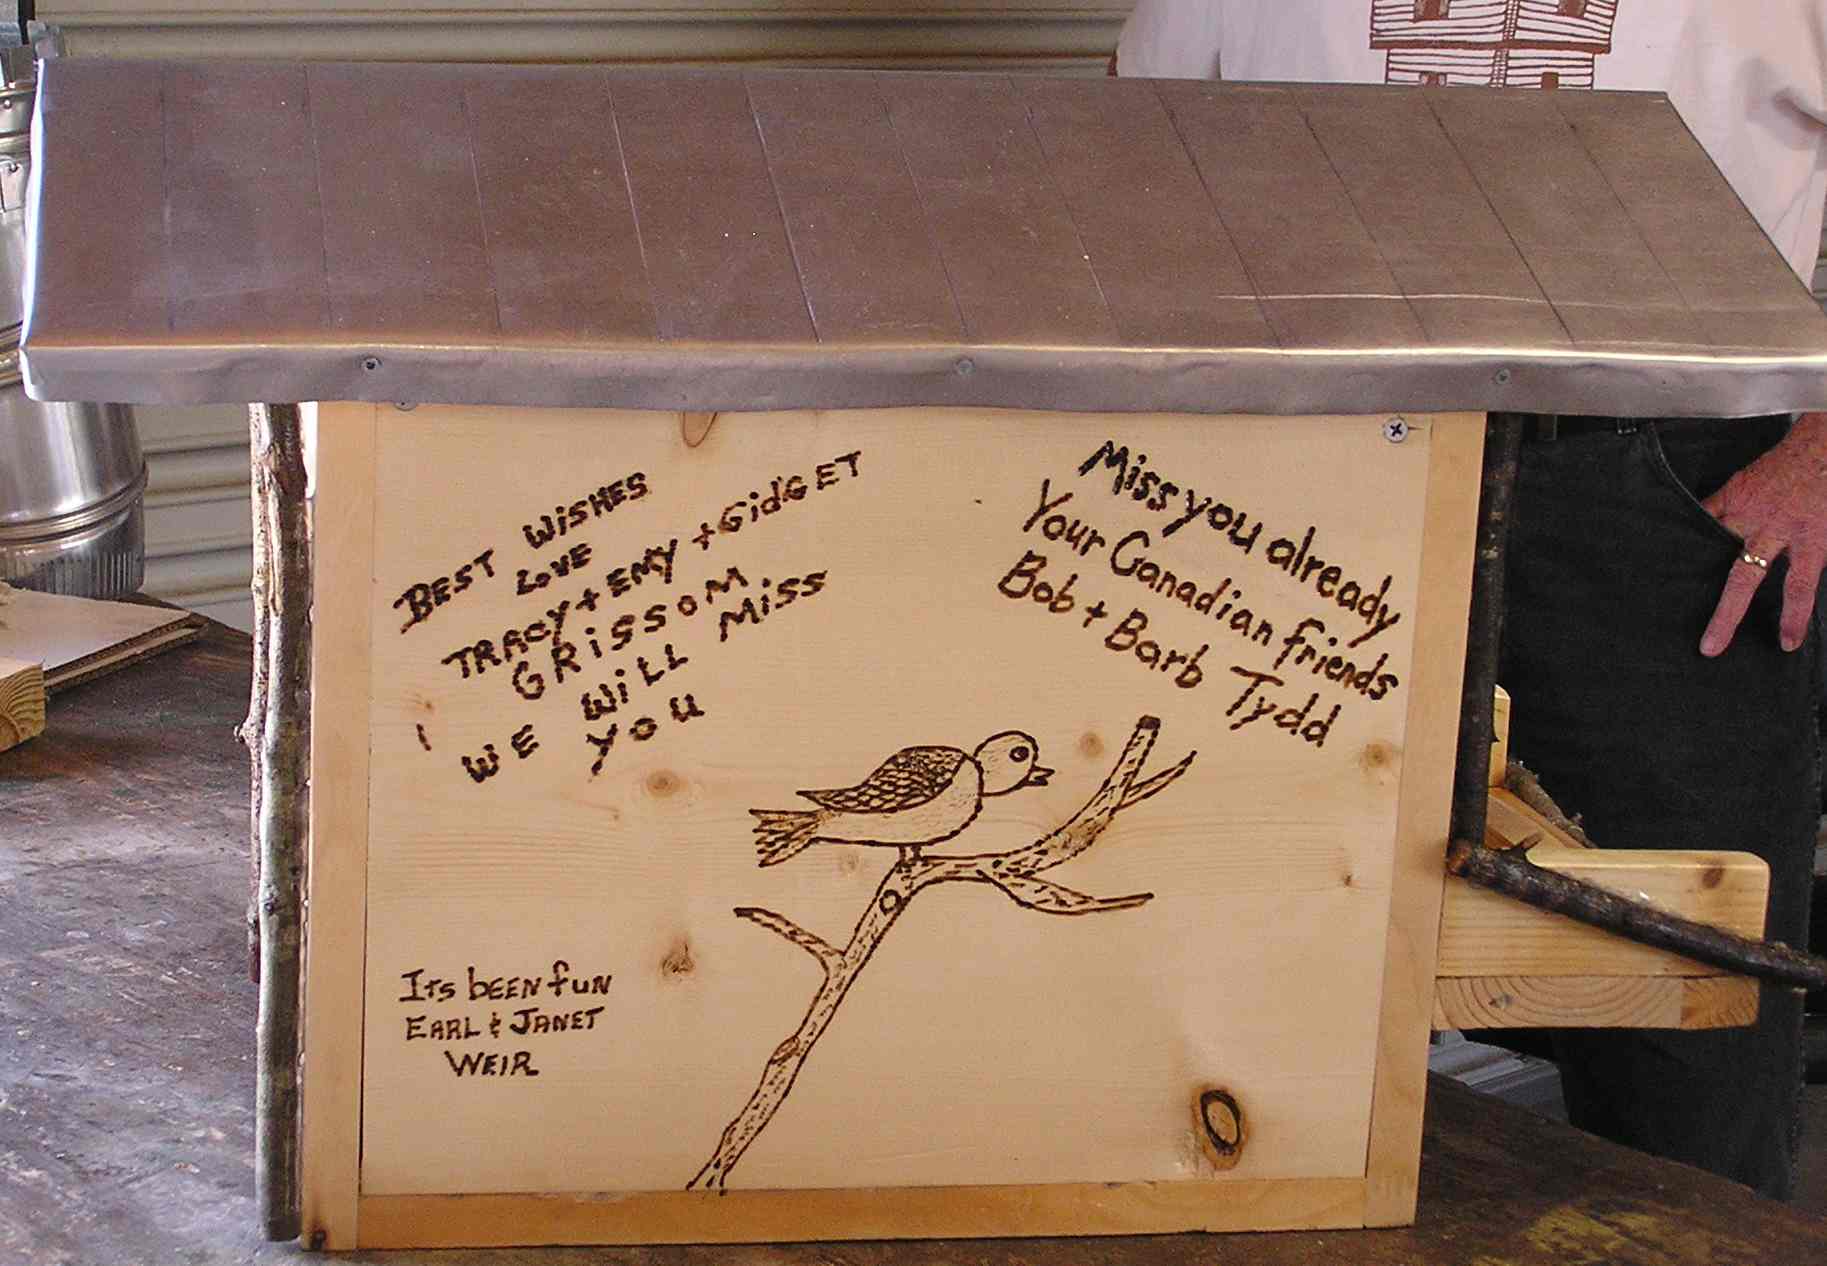 BEST WISHES
LOVE
TRACY + EMY + GidGET
GRISSOM
WE WILL MISS
YOU
Miss you already
Your Canadian friends
Bob + Barb Tydd
Its bEEN fUN
EARL & JANET
WEIR